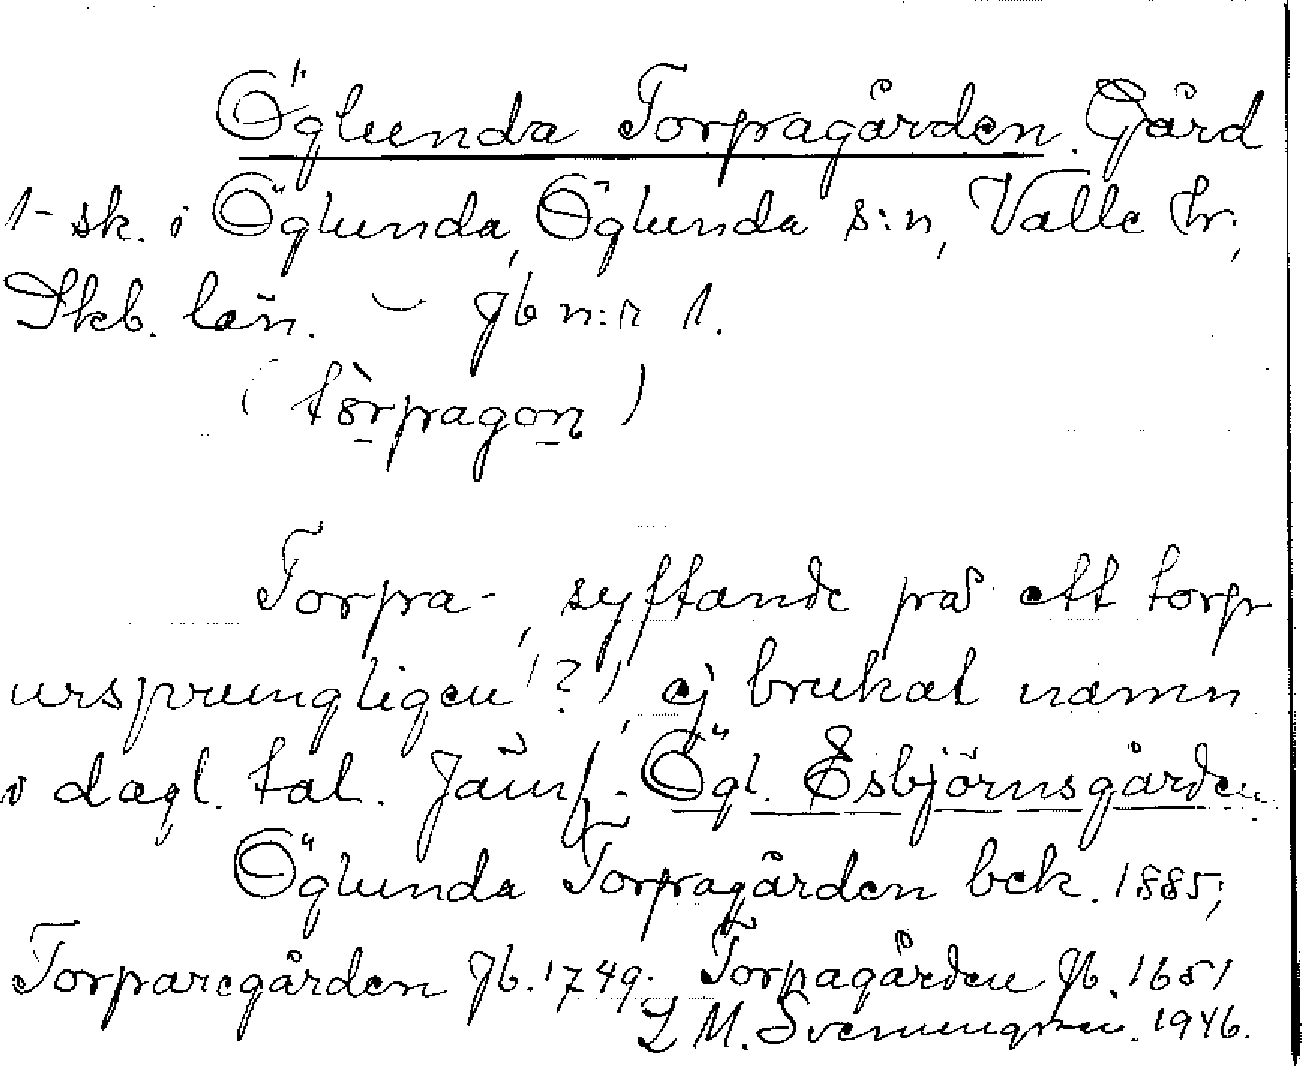 Öglunda Torpagården. Gård
1-sk. i Öglunda, Öglunda s:n, Valle hr,
Skb. län. – Jb n:r 1.
(tòrpagon)
Torpa-, syftande på ett torp
ursprungligen (?), ej brukat namn
i dagl. tal. Jämf. Ögl. Esbjörnsgården.
Öglunda Torpagården bek. 1885;
Torparegården Jb. 1749. Torpagården Jb. 1651
L M. Svenungsson. 1946.